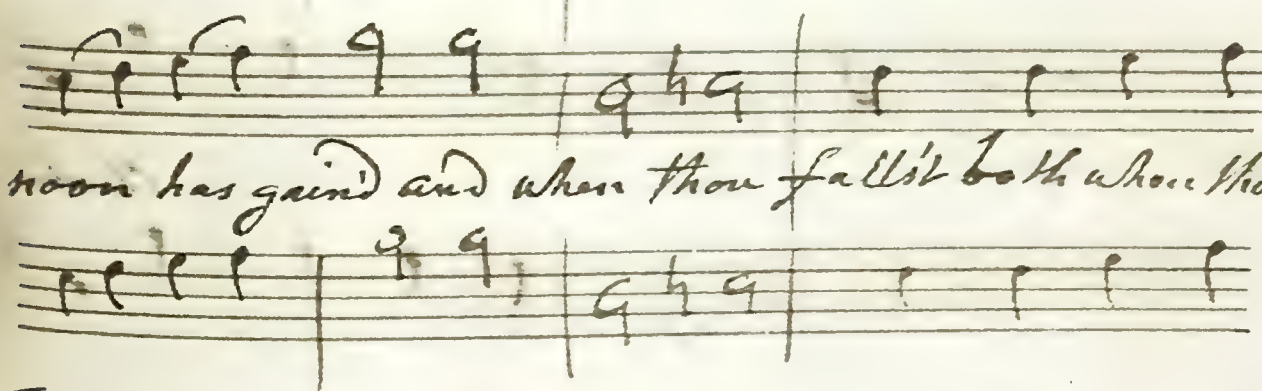 noon has gain'd and when thou fall'st both when tho